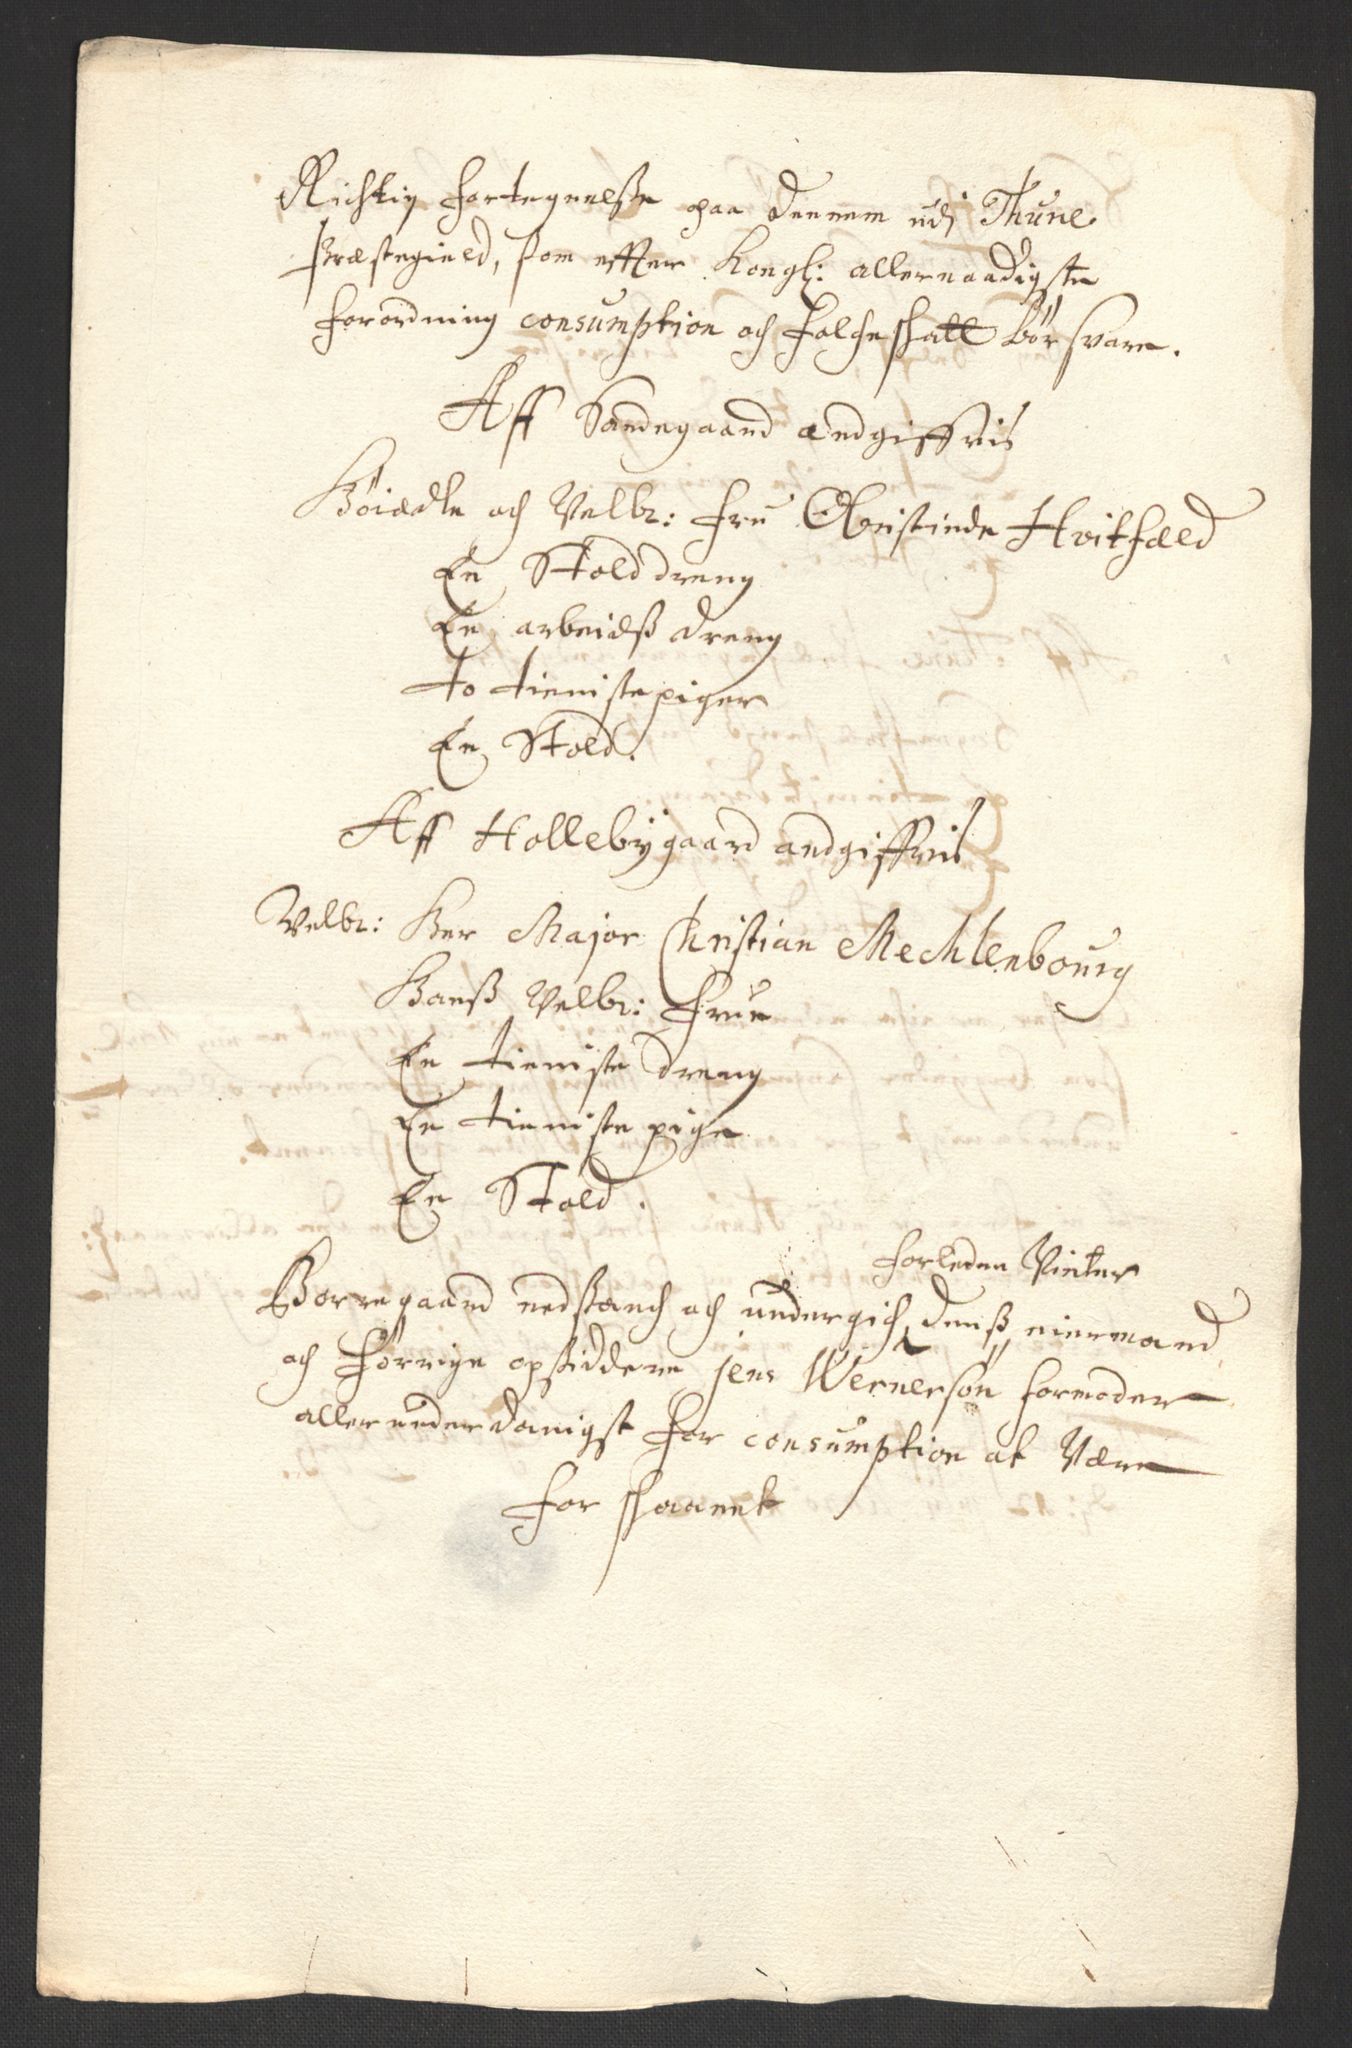 Richtig fortegnelße paa dennem udj Thune
præstegield, som effter Kongl: allernaadigste
forordning consumption och folcheskatt bør svare.
Aff Sandegaard andgiffvis
Høiædle och Velbr: Frue Øllustinde Hvitfæld
En Stolddreng
En arbeidß dreng
to tienistepiger
En Stold.
Aff Hollebÿgaard andgiffvis
Velbr: Her Major Christian Mechlenbourg
Hanß Velbr: Frue
En tieniste dreng
En tieniste pige
En Stold.
forleden Vinter
Borregaard nedsanch och undergich, denß eiermand
och forrige opsiddere jens Wernersøn formoder
allerunderdanigst for consumption at være
forskaanet